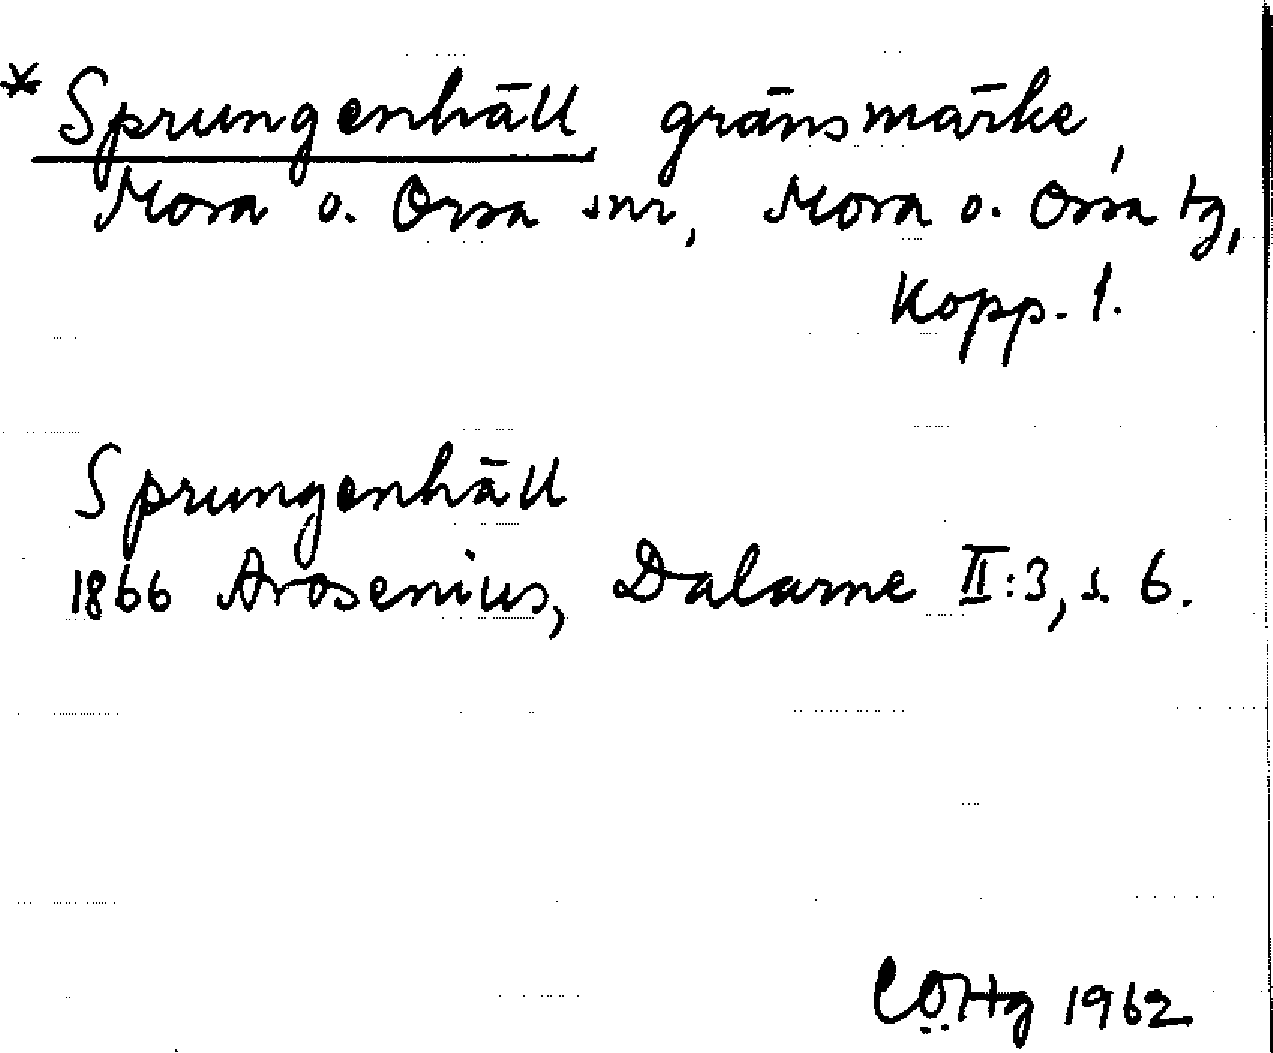 * Sprungenhäll gränsmärke,
Mora o. Orsa snr, Mora o. Orsa tg,
Kopp. l.
Sprungenhäll
1866 Arosenius, Dalarne II:3, s. 6.
1962